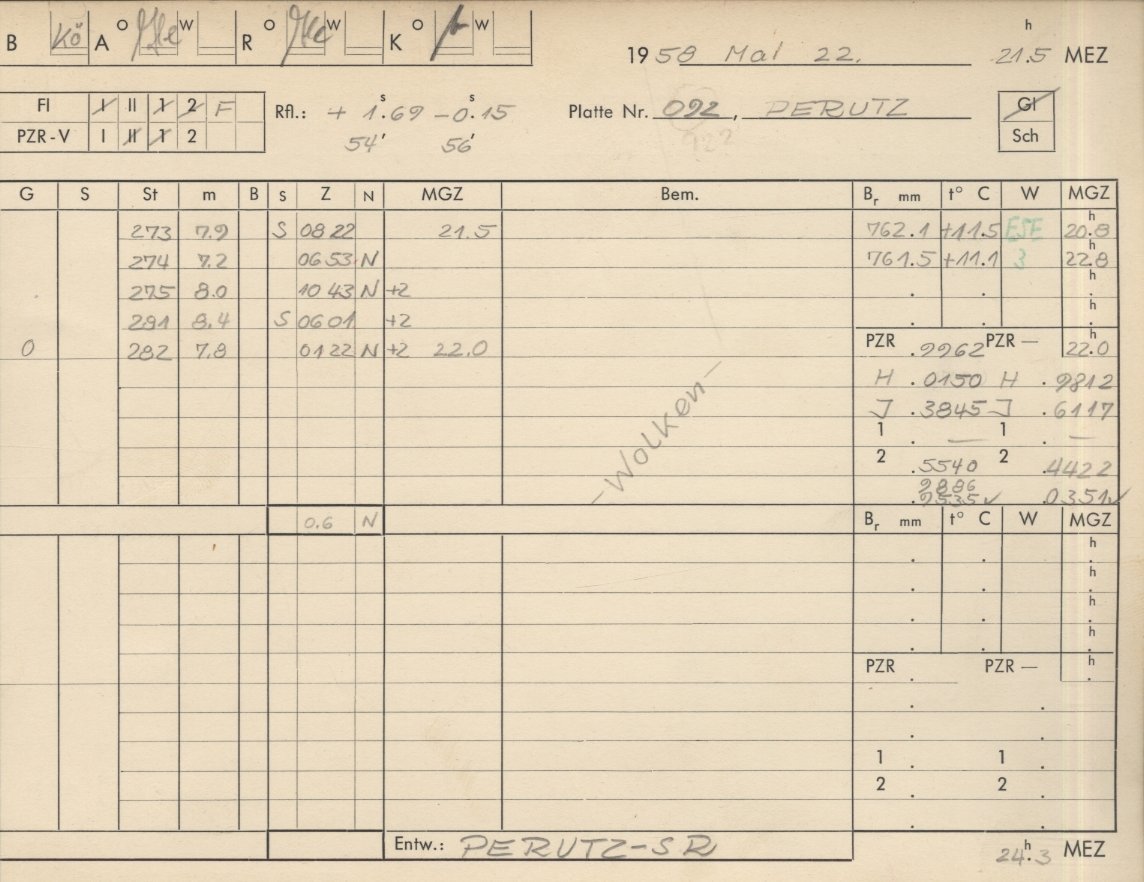 B Kö A O W R O W K O W
1958 Mai 22. 21.5 h MEZ
Fl I II 1 2 F
PZR-V I II 1 2
Rfl.: + 1.69 s - 0.15 s
54' 56'
Platte Nr. 092, PERUTZ
922
Gl
Sch
G S St m B S Z N MGZ Bem. Br mm t° C W MGZ
273 7.9 S 08 22 21.5 762.1 +11.5 ESE 20.8 h
274 7.2 06 53 N 761.5 +11.1 3 22.8 h
275 8.0 10 43 N +2 . . h
281 8.4 S 06 01 +2 . . h
0 282 7.8 01 22 N +2 22.0 PZR .9962 PZR – 22.0 h
H .0150 H .9812
J .3845 J .6117
1 . — 1 . —
2 .5540 2 .4422
– Wolken –
.9886
.9535 ✓ .0351 ✓
0.6 N Br mm t° C W MGZ
. . h
. . h
. . h
. . h
PZR . PZR – h
. .
. .
1 . 1 .
2 . 2 .
. .
Entw.: PERUTZ-SR
24.3 h MEZ